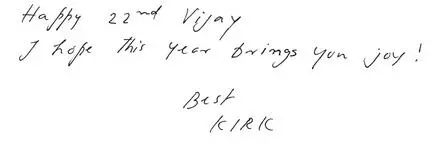 Happy 22nd Vijay
I hope this year brings you joy!
Best
KIRK